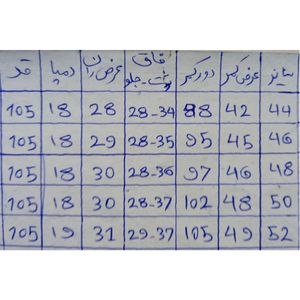 سایز عرض کمر دور کمر فاق پشت-جلو عرض ران دمپا قد
44 42 88 28-34 28 18 105
46 45 95 28-35 29 18 105
48 46 97 28-36 30 18 105
50 48 102 28-37 30 18 105
52 49 105 29-37 31 19 105